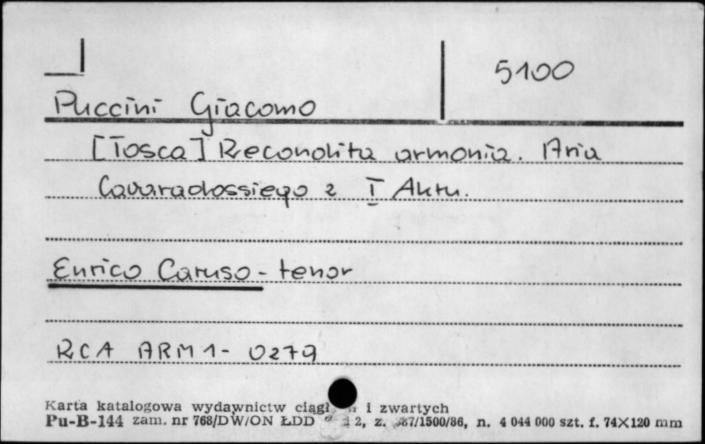 5100
Puccini Giacomo
[Tosca] Recondita armonia. Aria
Cavaradossiego z I Aktu.
Enrico Caruso - tenor
RCA ARM1-0279
Karta katalogowa wydawnictw i zwartych
Pu-B-144 zam. nr 768/DW/ON ŁDD 2, z. 87/1500/86, n. 4 044 000 szt. f. 74×120 mm